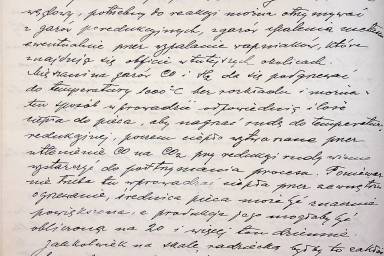 węglowy, potrzebny do reakcji można otrzymywać
z gazów poredukcyjnych, z gazów spalenia
ewentualnie przez wypalanie wapniaków, które
znajdują się obficie w tutejszych okolicach.
Mieszaninę gazów CO i H₂ da się podgrzewać
do temperatury 1000°C bez rozkładu i można w
ten sposób wprowadzić odpowiednią ilość
ciepła do pieca, aby nagrzać rudę do temperatury
redukcyjnej, poczem ciepło wytwarzane przez
utlenianie CO na CO₂ przy redukcji rudy winno
wystarczyć do podtrzymania procesu. Ponieważ
nie trzeba tu wprowadzać ciepła przez zewnętrzne
ogrzewanie, średnica pieca może być znacznie
powiększona, a produkcja jego mogłaby być
obliczona na 20 i więcej ton dziennie.
Jakkolwiek na skalę radziecką byłby to